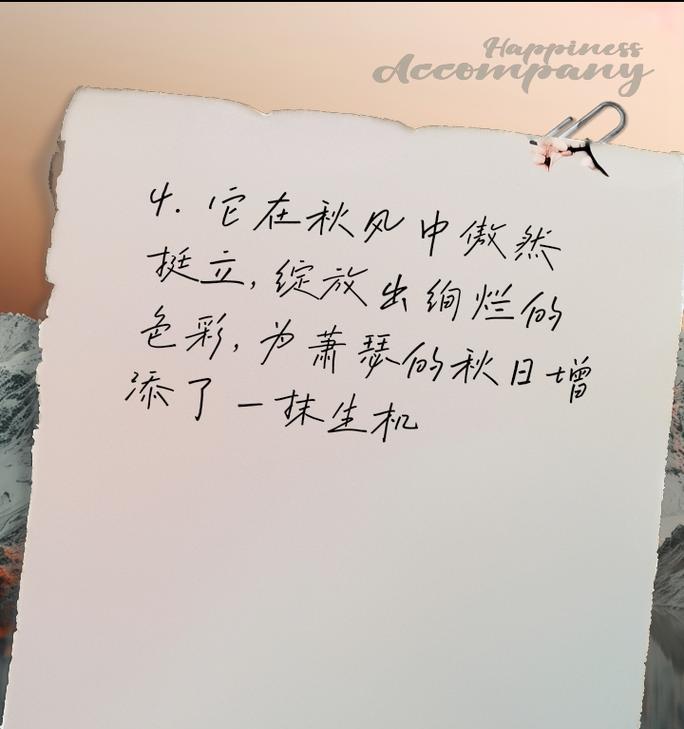 Happiness
Accompany
4. 它在秋风中傲然
挺立,绽放出绚烂的
色彩,为萧瑟的秋日增
添了一抹生机